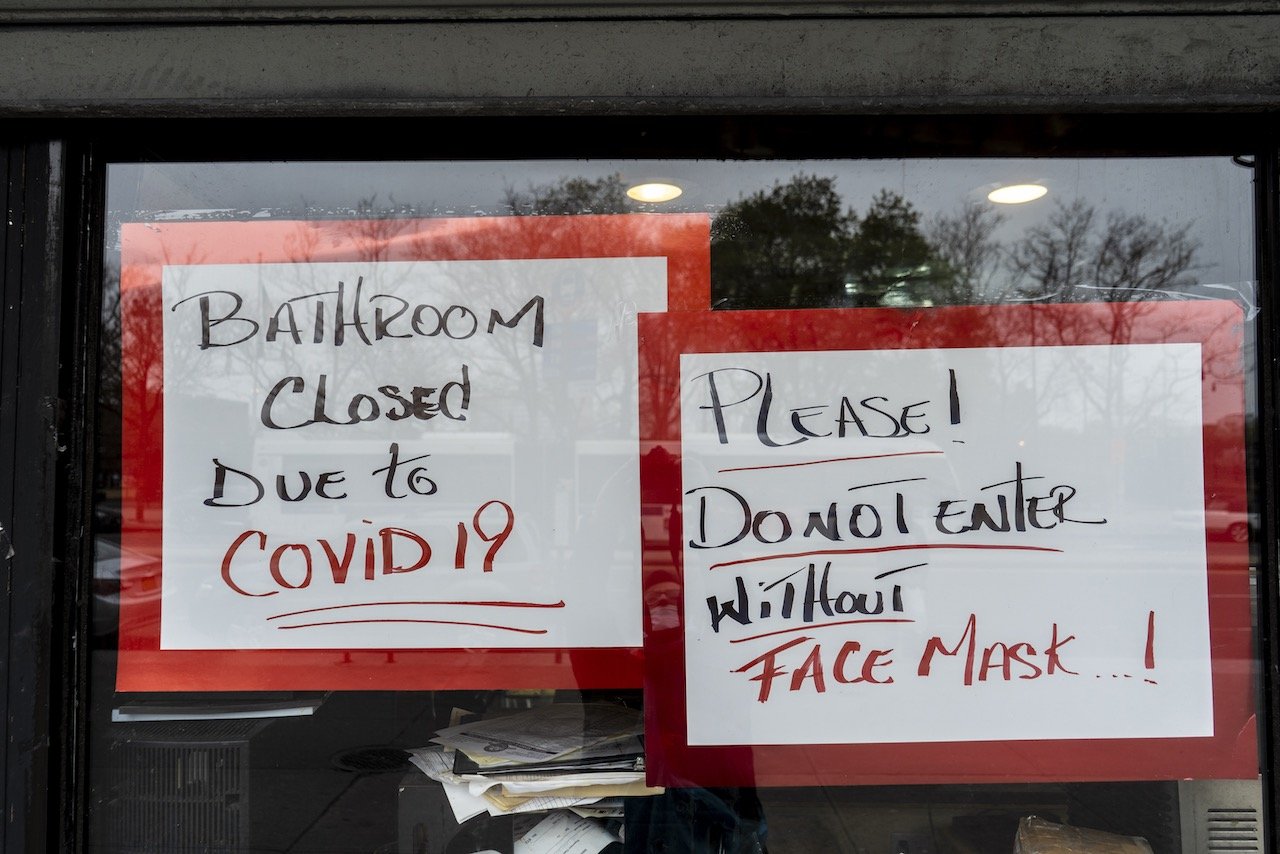 BATHROOM
CLOSED
DUE to
COVID 19
PLEASE!
DO NOT ENTER
WITHOUT
FACE MASK...!